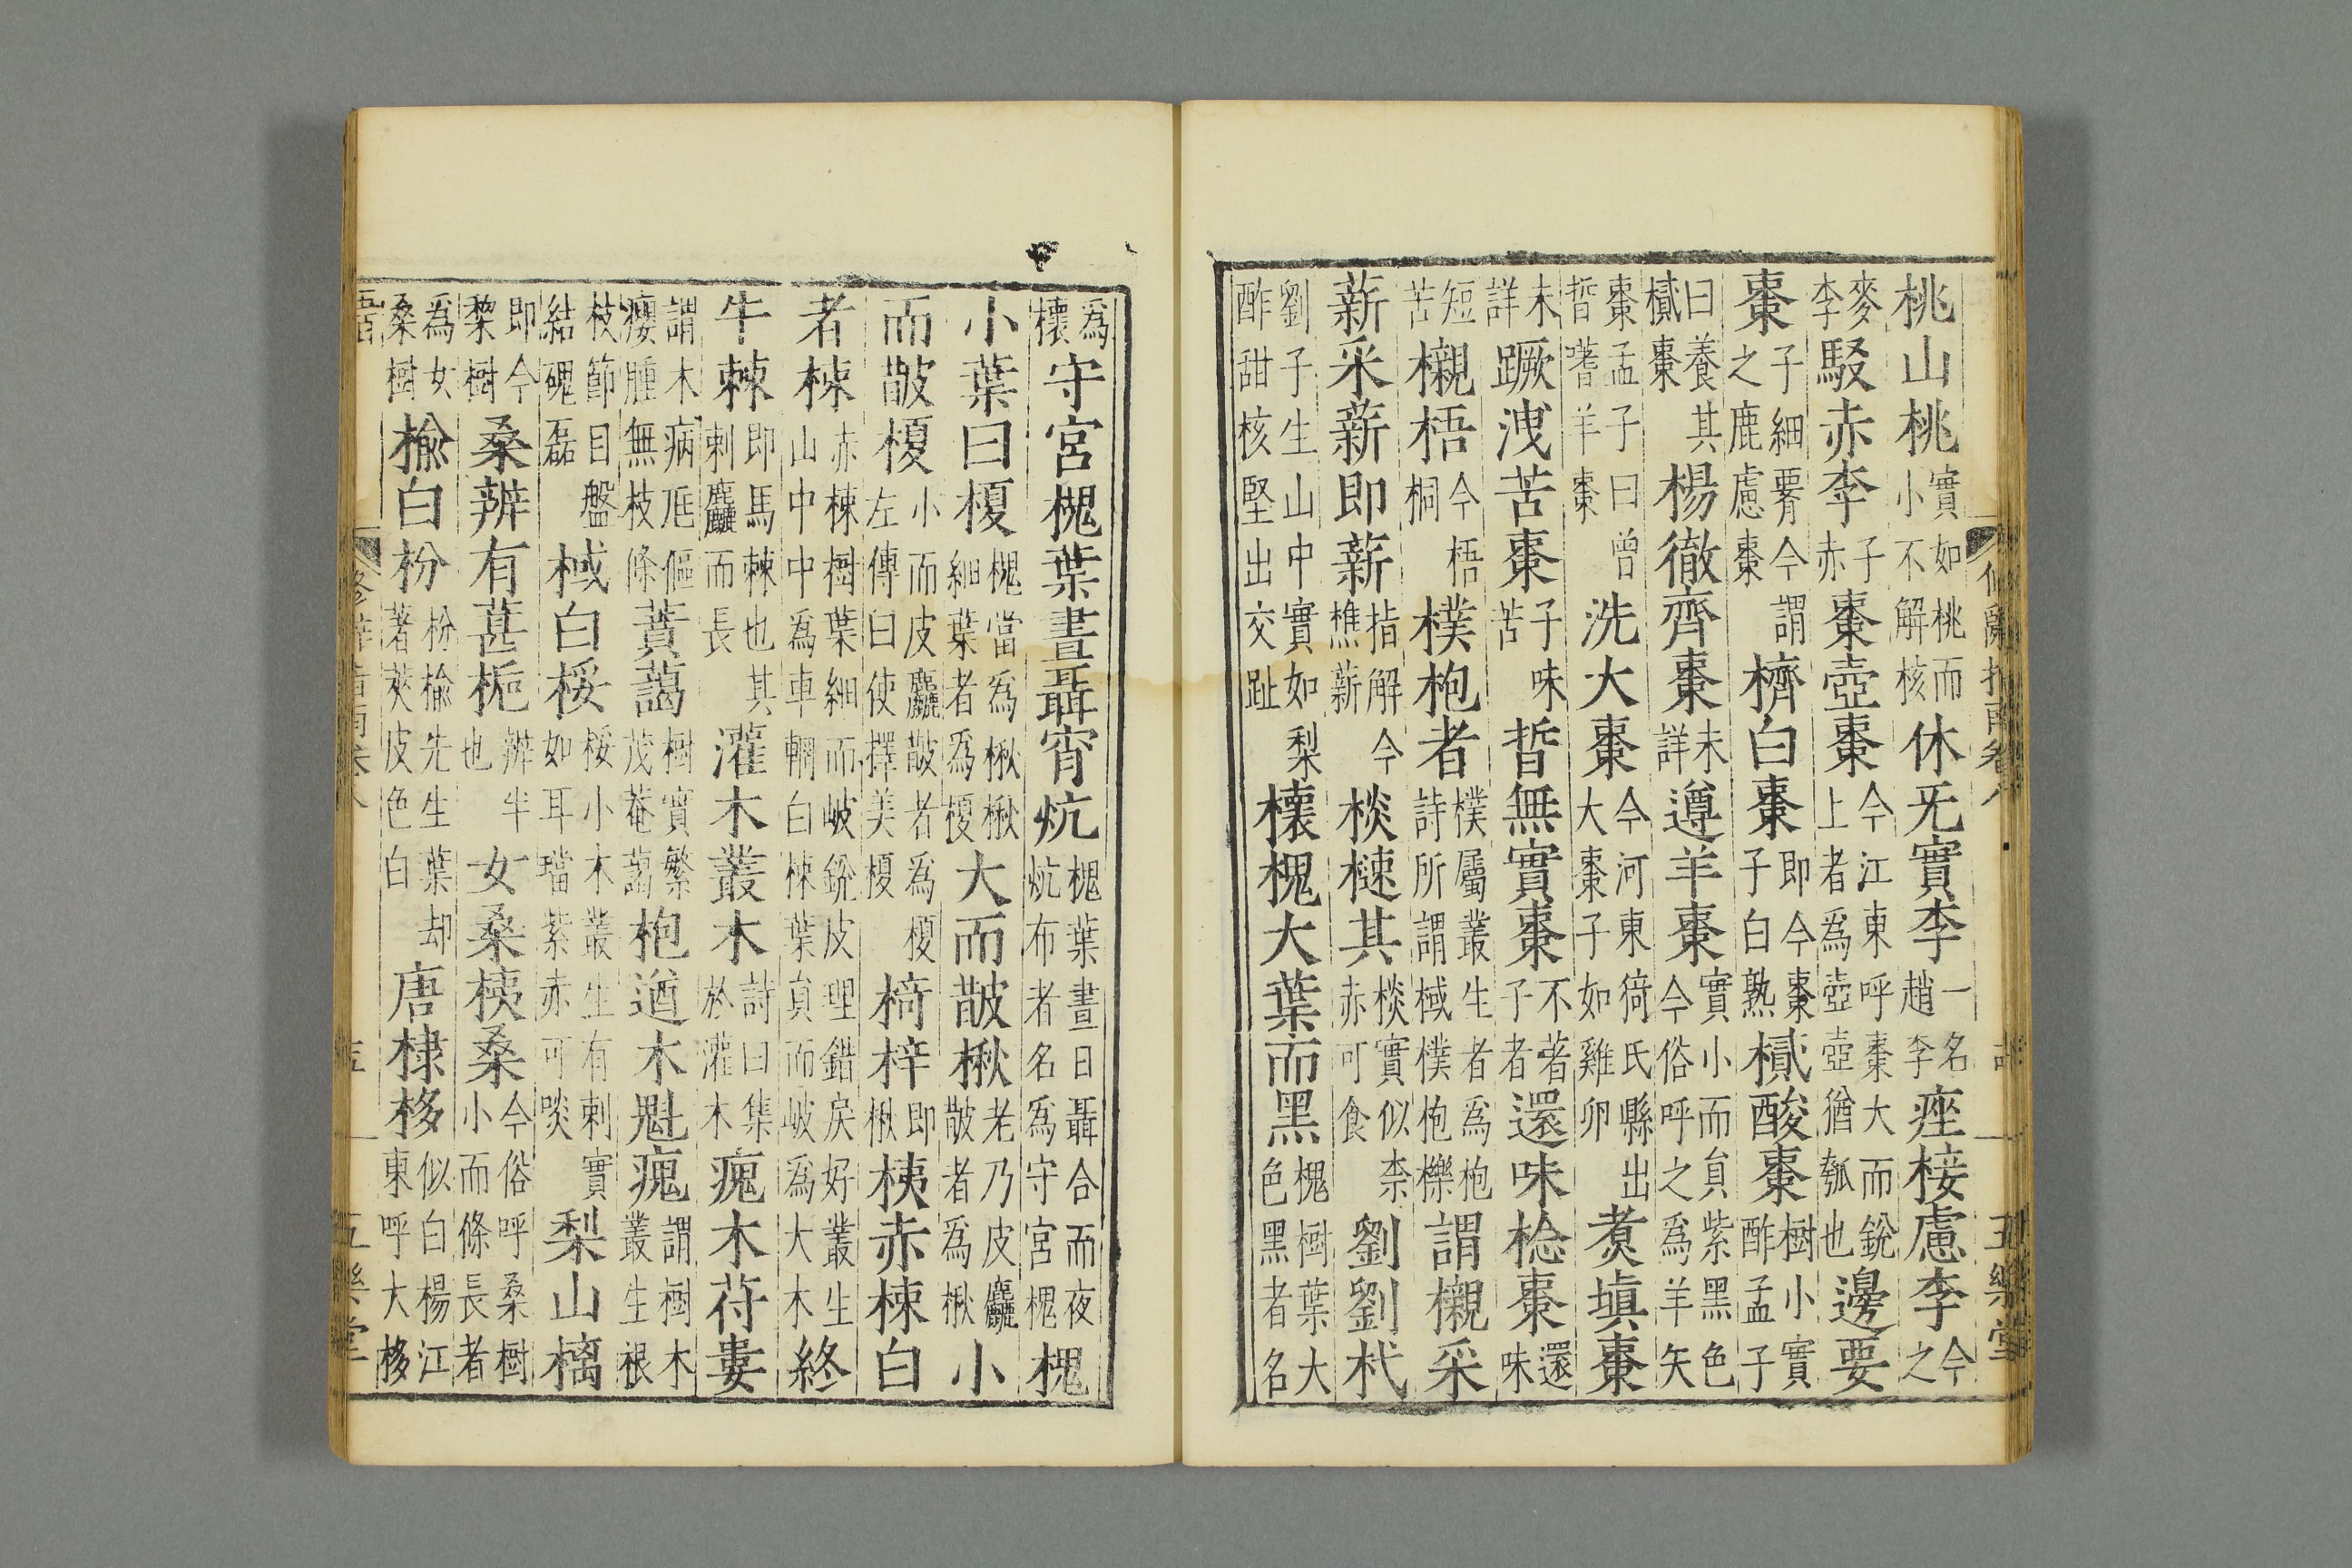 修辭指南卷八 五樂堂
桃山桃實如桃而小不解核休无實李一名趙李痤椄慮李今之
麥李駁赤李子赤棗壺棗今江東呼棗大而銳上者為壺壺猶瓠也邊要
棗子細腰今謂之鹿慮棗櫅白棗即今棗子白熟樲酸棗樹小實酢孟子
曰養其樲棗楊徹齊棗未詳遵羊棗實小而員紫黑色今俗呼之為羊矢
棗孟子曰曾晳嗜羊棗洗大棗今河東猗氏縣出大棗子如雞卵煑塡棗
未詳蹶洩苦棗子味苦晳無實棗不著子者還味棯棗還味
短苦櫬梧今梧桐樸枹者樸屬叢生者為枹詩所謂棫樸枹櫟謂櫬采
薪采薪即薪指解今樵薪棪樕其棪實似柰赤可食劉劉杙
劉子生山中實如梨酢甜核堅出交趾櫰槐大葉而黑槐樹葉大色黑者名
為櫰守宮槐葉晝聶宵炕槐葉晝日聶合而夜炕布者名為守宮槐槐
小葉曰榎槐當為楸楸細葉者為榎大而皵楸老乃皮麤皵者為楸小
而皵榎小而皮麤皵者為榎左傳曰使擇美榎椅梓即楸桋赤楝白
者楝赤楝樹葉細而岐銳皮理錯戾好叢生山中中為車輞白楝葉員而岐為大木終
牛棘即馬棘也其刺麤而長灌木叢木詩曰集於灌木瘣木苻婁
謂木病尫傴癭腫無枝條蕡藹樹實繁茂菴藹枹遒木魁瘣謂樹木叢生根
枝節目盤結磈磊棫白桵桵小木叢生有刺實如耳璫紫赤可啖梨山樆
即今棃樹桑辨有葚梔辨半也女桑桋桑今俗呼桑樹小而條長者
為女桑樹榆白枌枌榆先生葉却著莢皮色白唐棣栘似白楊江東呼大栘